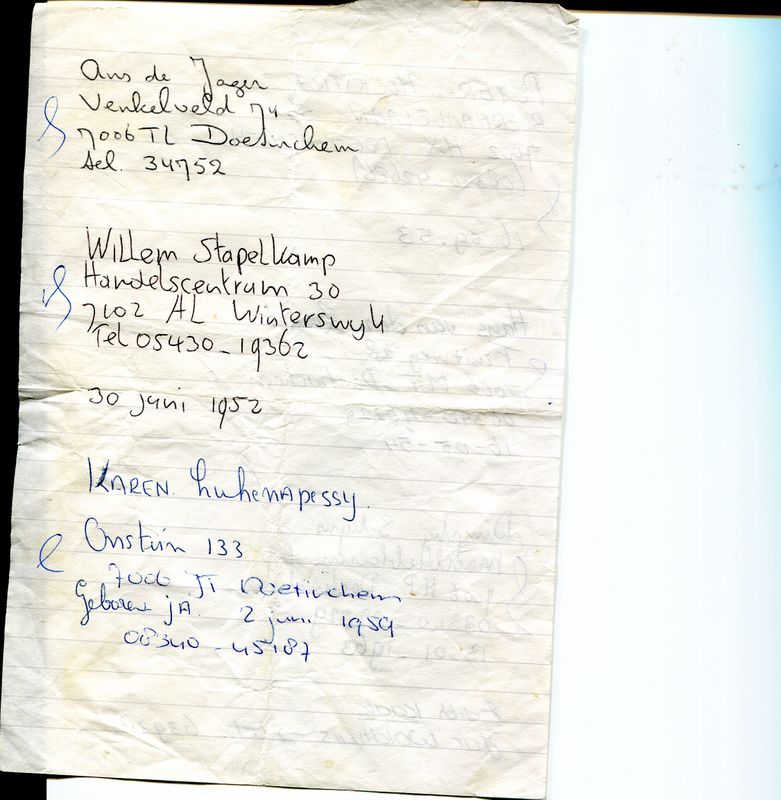 Ans de Jager
Venkelveld 74
7006 TL Doetinchem
tel. 34752
Willem Stapelkamp
Handelscentrum 30
7102 AL Winterswyk
Tel 05430-19362
30 juni 1952
KAREN Luhenapessy.
Onstein 133
7006 JT Doetinchem
Geboren jA. 2 juni 1959
08340-45187